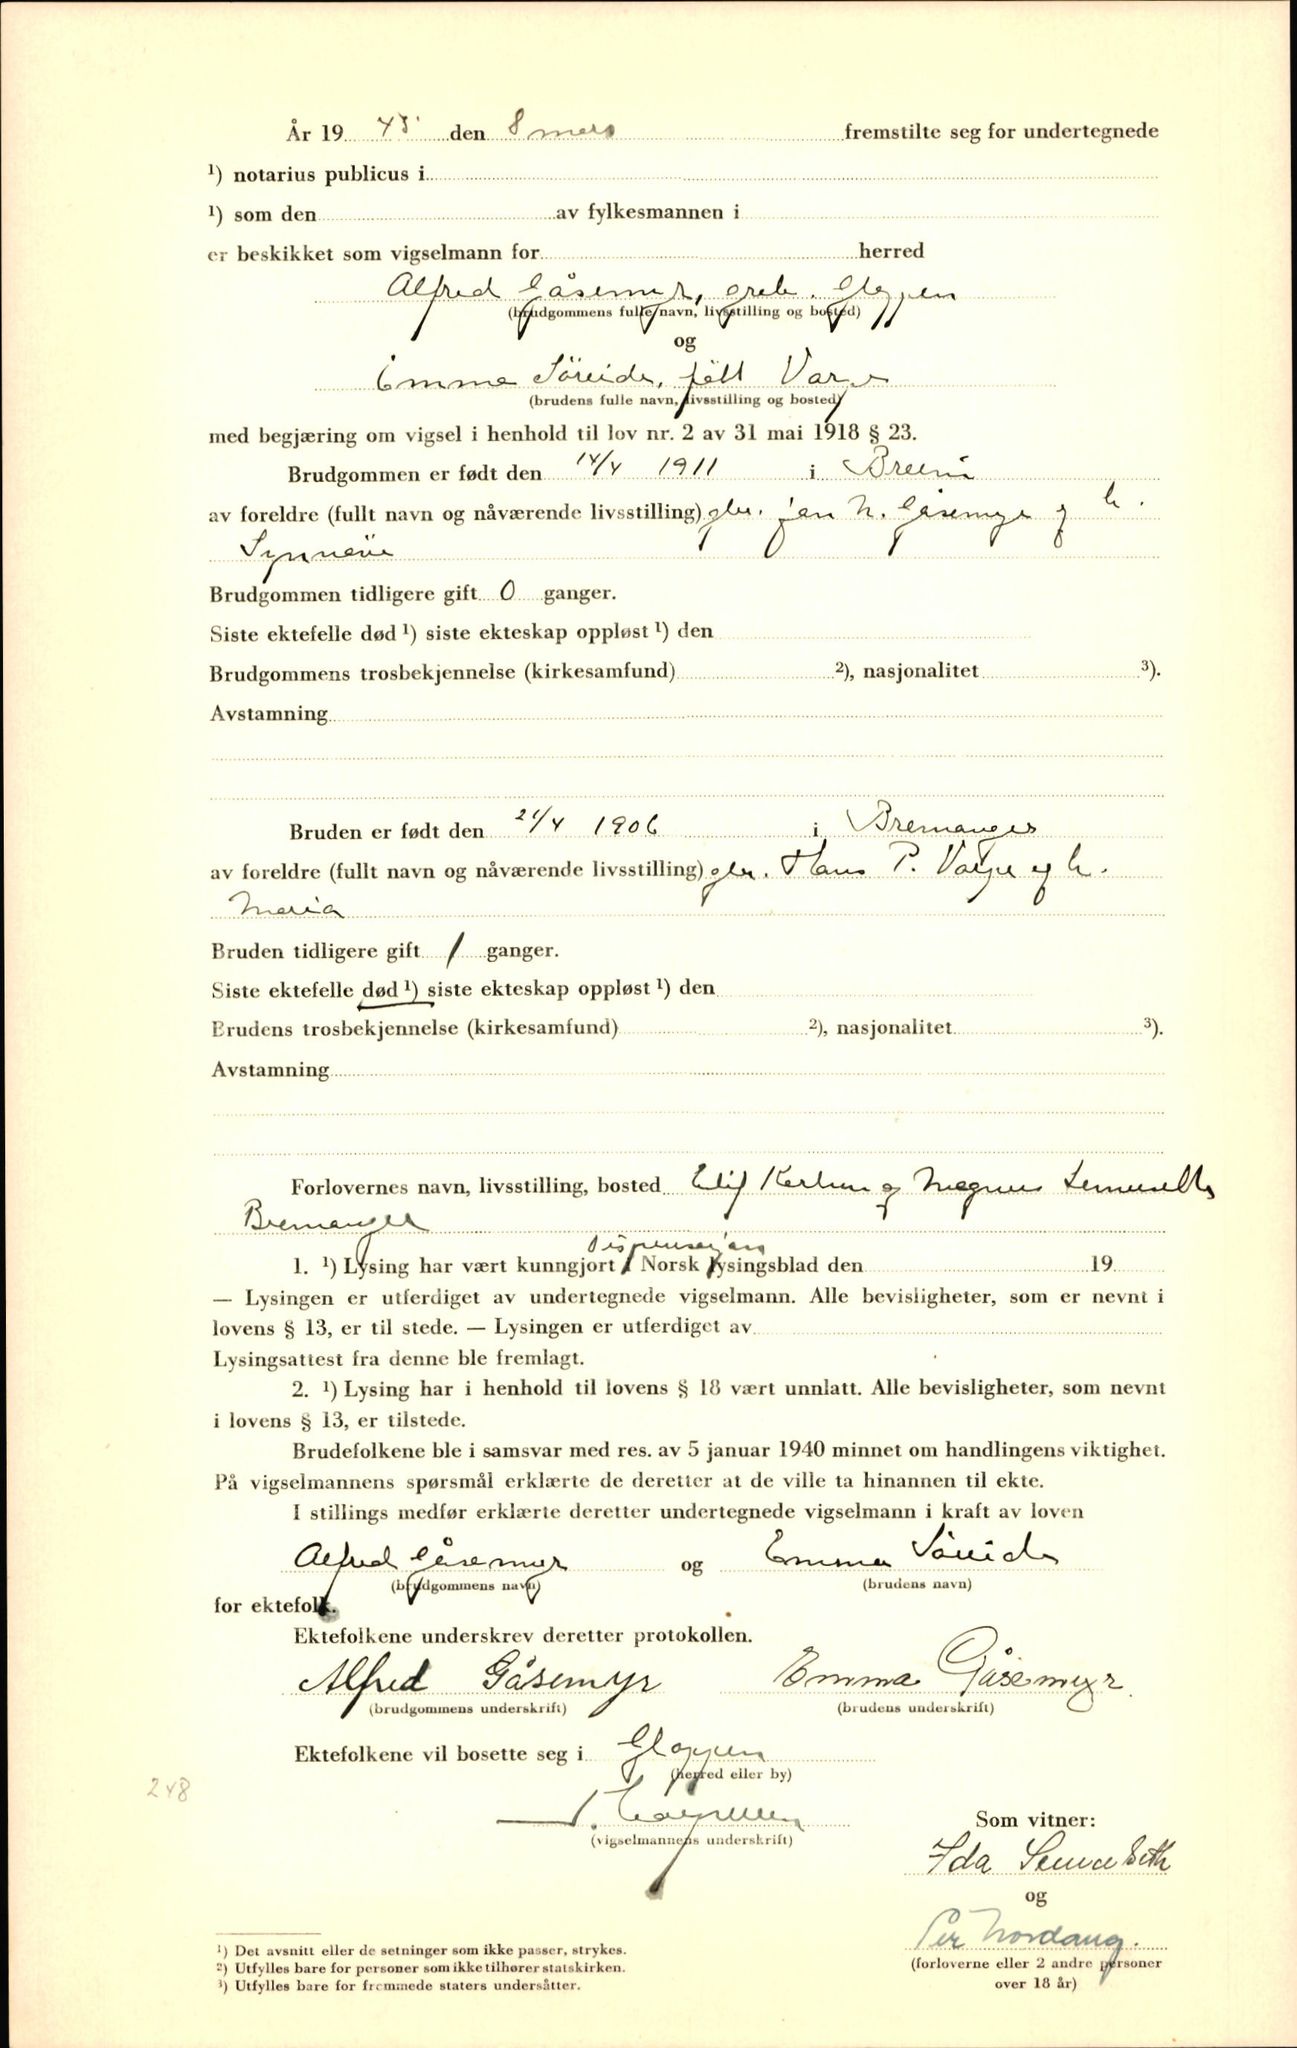 År 19 45 den 8 mars fremstilte seg for undertegnede
¹) notarius publicus i
¹) som den av fylkesmannen i
er beskikket som vigselmann for herred
Alfred Gåsemyr, arb. Gloppen
(brudgommens fulle navn, livsstilling og bosted)
og
Emma Söreide, født Varpe
(brudens fulle navn, livsstilling og bosted)
med begjæring om vigsel i henhold til lov nr. 2 av 31 mai 1918 § 23.
Brudgommen er født den 14/4 1911 i Breim
av foreldre (fullt navn og nåværende livsstilling) gbr. Jon N. Gåsemyr og h.
Synnøve
Brudgommen tidligere gift 0 ganger.
Siste ektefelle død ¹) siste ekteskap oppløst ¹) den
Brudgommens trosbekjennelse (kirkesamfund) ²), nasjonalitet ³).
Avstamning
Bruden er født den 21/4 1906 i Bremanger
av foreldre (fullt navn og nåværende livsstilling) gbr. Hans P. Varpe og h.
Maria
Bruden tidligere gift 1 ganger.
Siste ektefelle død ¹) siste ekteskap oppløst ¹) den
Brudens trosbekjennelse (kirkesamfund) ²), nasjonalitet ³).
Avstamning
Forlovernes navn, livsstilling, bosted og Magnus
Bremanger
Dispensasjon
1. ¹) Lysing har vært kunngjort i Norsk lysingsblad den 19
— Lysingen er utferdiget av undertegnede vigselmann. Alle bevisligheter, som er nevnt i
lovens § 13, er til stede. — Lysingen er utferdiget av
Lysingsattest fra denne ble fremlagt.
2. ¹) Lysing har i henhold til lovens § 18 vært unnlatt. Alle bevisligheter, som nevnt
i lovens § 13, er tilstede.
Brudefolkene ble i samsvar med res. av 5 januar 1940 minnet om handlingens viktighet.
På vigselmannens spørsmål erklærte de deretter at de ville ta hinannen til ekte.
I stillings medfør erklærte deretter undertegnede vigselmann i kraft av loven
Alfred Gåsemyr og Emma Söreide
(brudgommens navn) (brudens navn)
for ektefolk.
Ektefolkene underskrev deretter protokollen.
Alfred Gåsemyr Emma Gåsemyr.
(brudgommens underskrift) (brudens underskrift)
Ektefolkene vil bosette seg i Gloppen
(herred eller by)
248
(vigselmannens underskrift)
Som vitner:
Ida
og
Per Nordang.
(forloverne eller 2 andre personer
over 18 år)
¹) Det avsnitt eller de setninger som ikke passer, strykes.
²) Utfylles bare for personer som ikke tilhører statskirken.
³) Utfylles bare for fremmede staters undersåtter.